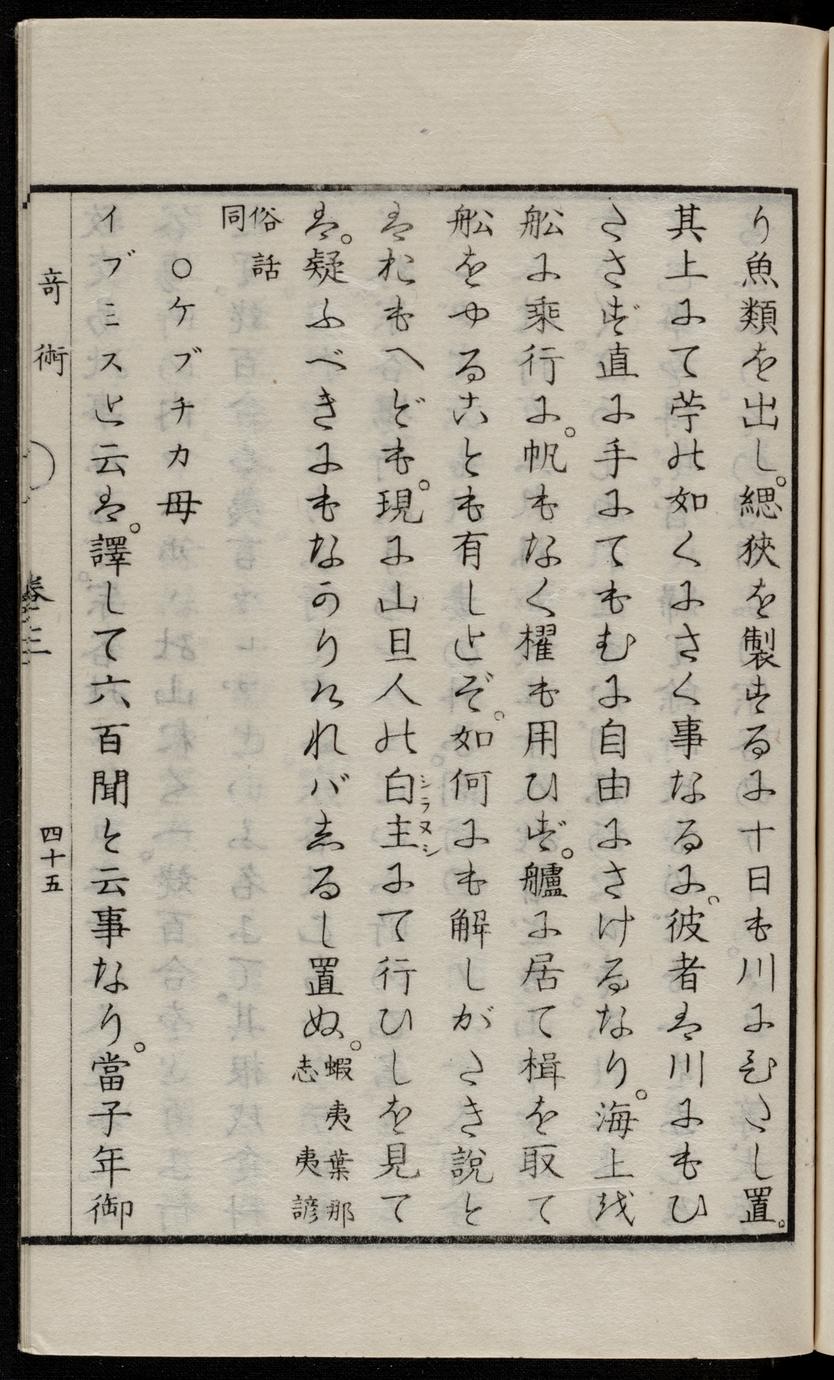 り魚類を出し。緦狹を製するに十日も川にひたし置。
其上にて苧の如くにさく事なるに。彼者は川にもひ
たさず直に手にてもむに自由にさけるなり。海上を
舩に乘行に。帆もなく櫂も用ひず。艫に居て楫を取て
舩をやることも有しとぞ。如何にも解しがたき説と
はおもへども。現に山旦人の白主にて行ひしを見て
シラヌシ
は。疑ふべきにもなのりければしるし置ぬ。
蝦夷葉那
志 夷諺
俗話
同
○ケブチカ母
イブミスと云は。譯して六百聞と云事なり。當子年御
竒術
卷三
四十五